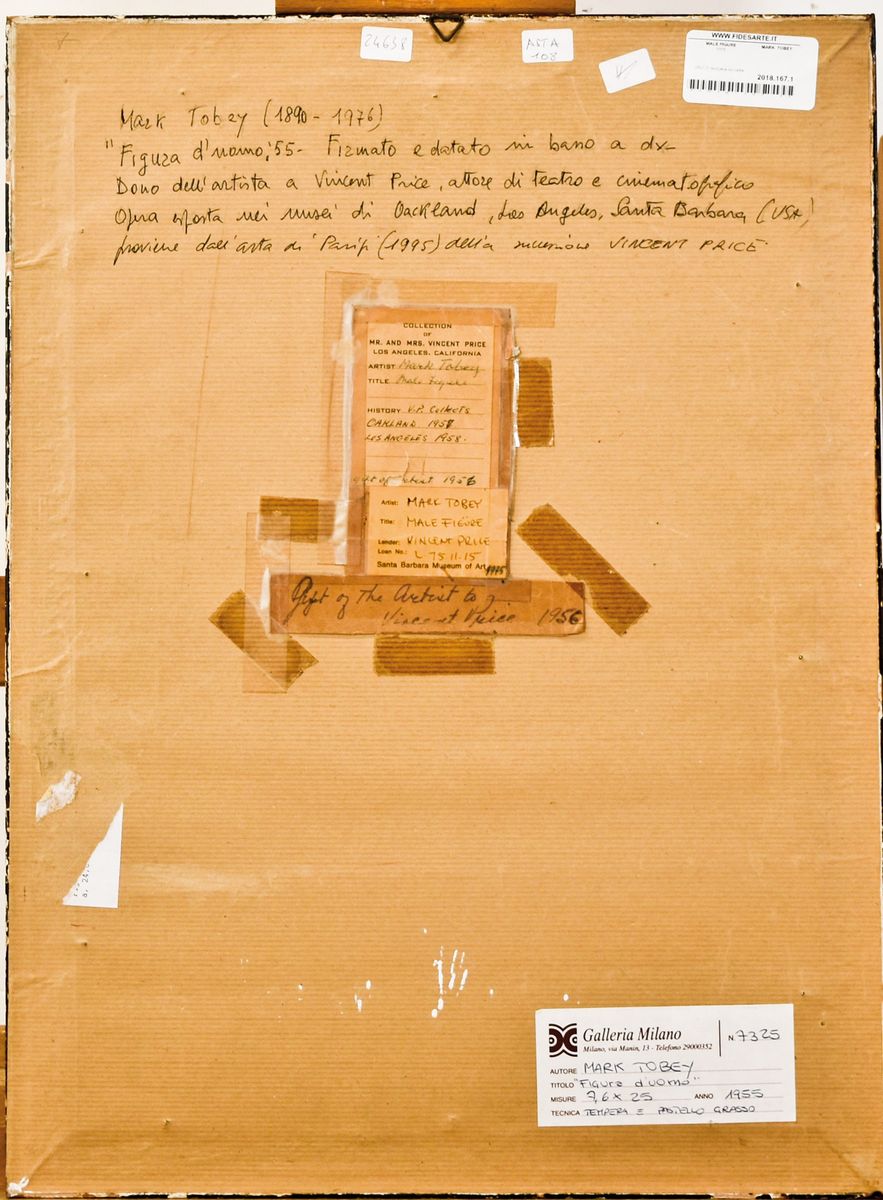 24638
ASTA
108
WWW.FIDESARTE.IT
MALE FIGURE MARK TOBEY
2018.167.1
Mark Tobey (1890-1976)
"Figura d'uomo,'55- Firmato e datato in basso a dx-
Dono dell'artista a Vincent Price, attore di teatro e cinematografico
Opera esposta nei musei di Oackland, Los Angeles, Santa Barbara (USA)
proviene dall'asta di Parigi (1995) della successione VINCENT PRICE.
COLLECTION
OF
MR. AND MRS. VINCENT PRICE
LOS ANGELES, CALIFORNIA
ARTIST Mark Tobey
TITLE Male Figure
HISTORY V.P. Collects
OAKLAND 1957
LOS ANGELES 1958.
gift of artist 1956
Artist: MARK TOBEY
Title: MALE FIGURE
Lender: VINCENT PRICE
Loan No.: L 75.11.15
Santa Barbara Museum of Art 1975
Gift of the Artist to
Vincent Price 1956
Galleria Milano N. 7325
Milano, via Manin, 13 - Telefono 29000352
AUTORE MARK TOBEY
TITOLO "Figura d'uomo"
MISURE 7,6 x 25 ANNO 1955
TECNICA TEMPERA E PASTELLO GRASSO